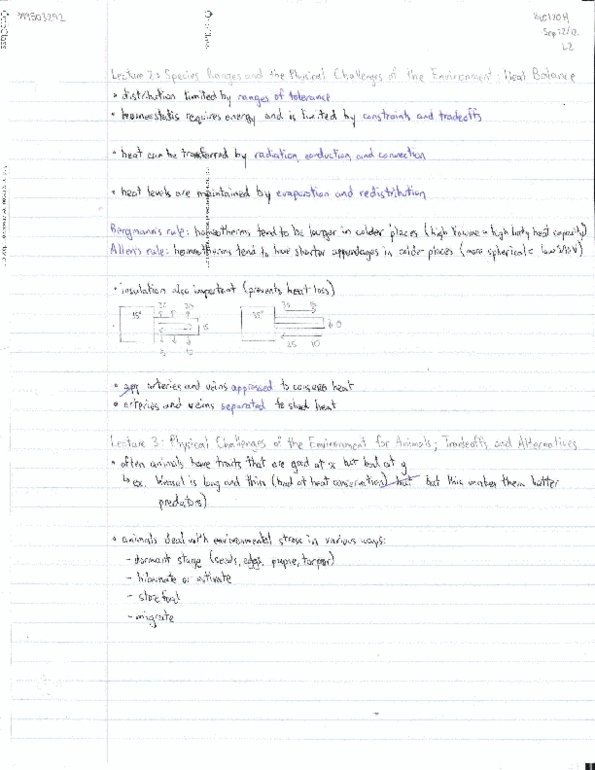 BIO120H
Sep 22/12
L2
Lecture 2: Species Ranges and the Physical Challenges of the Environment: Heat Balance
• distribution limited by ranges of tolerance
• homeostatis requires energy and is limited by constraints and tradeoffs
• heat can be transferred by radiation, conduction, and convection
• heat levels are maintained by evaporation and redistribution
Bergmann's rule: homeotherms tend to be larger in colder places (high volume = high body heat capacity)
Allen's rule: homeotherms tend to have shorter appendages in colder places (more spherical = low SA:V)
• insulation also important (prevents heat loss)
35°
35°
25 10
• arteries and veins appressed to conserve heat
• arteries and veins separated to shed heat
Lecture 3: Physical Challenges of the Environment for Animals; Tradeoffs and Alternatives
• often animals have traits that are good at x but bad at y
↳ ex. weasel is long and thin (bad at heat conservation) but this makes them better
predators)
• animals deal with environmental stress in various ways:
- dormant stage (seeds, eggs, pupae, torpor)
- hibernate or estivate
- store food
- migrate